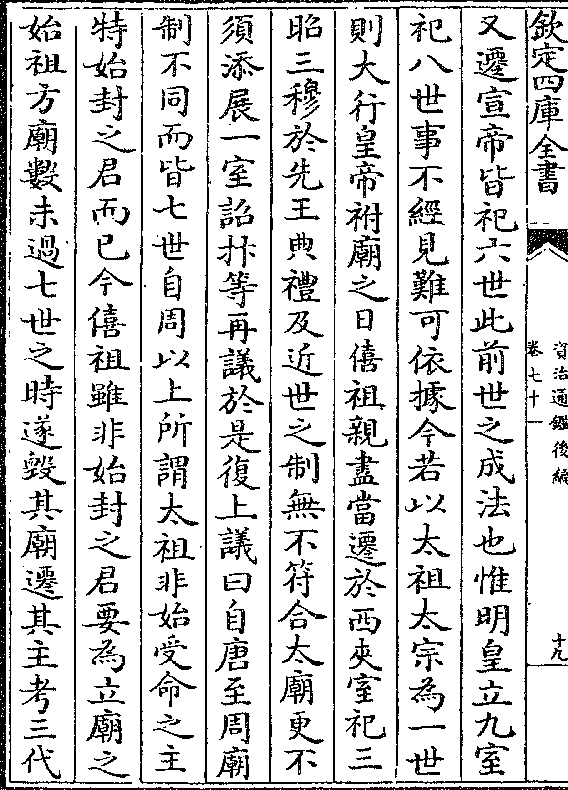 欽定四庫全書
資治通鑑後編
卷七十一
十九
又遷宣帝皆祀六世此前世之成法也惟明皇立九室
祀八世事不經見難可依據今若以太祖太宗為一世
則大行皇帝祔廟之日僖祖親盡當遷於西夾室祀三
昭三穆於先王典禮及近世之制無不符合太廟更不
須添展一室詔抃等再議於是復上議曰自唐至周廟
制不同而皆七世自周以上所謂太祖非始受命之主
特始封之君而已今僖祖雖非始封之君要為立廟之
始祖方廟數未過七世之時遂毀其廟遷其主考三代